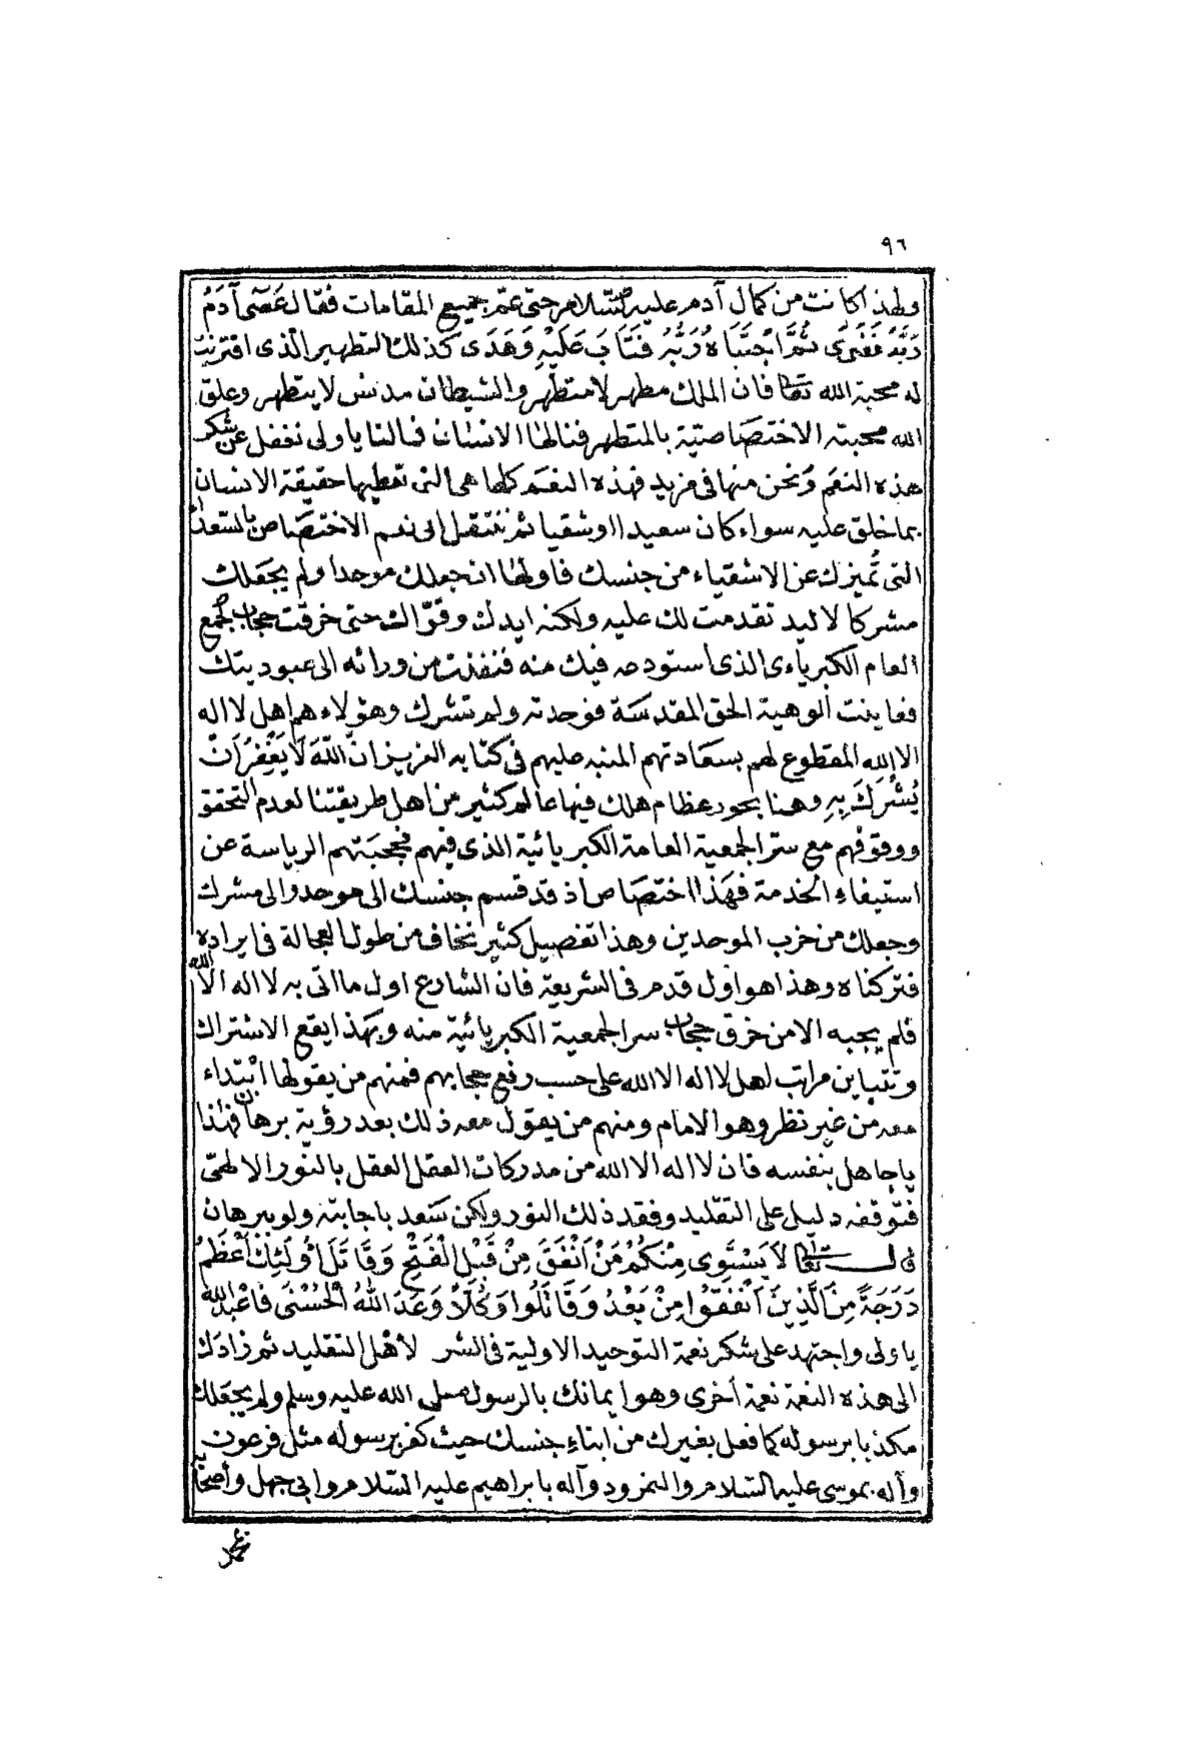 ٩٦
ولهذا كانت من كمال آدم عليه السلام حتى عم جميع المقامات فقال عَصَى آدَمُ
رَبَّهُ فَغَوَى ثُمَّ اجْتَبَاهُ رَبُّهُ فَتَابَ عَلَيْهِ وَهَدَى كذلك التطهير الذى اقترنت
له محبة الله تعالى فان الملك مطهر لا متطهر والشيطان مدنس لا يتطهر وعلق
الله محبته الاختصاصيّة بالمتطهر فنالها الانسان فمالنا ياولى نغفل عن شكر
هذه النعم ونحن منها فى مزيد فهذه النعم كلها هى التى تعطيها حقيقة الانسان
بما خلق عليه سواء كان سعيدا او شقيا ثم ننتقل الى نعم الاختصاص بالسعداء
التى تُميزك عن الاشقياء من جنسك فأولها ان جعلك موحدا ولم يجعلك
مشركا لا ليد تقدمت لك عليه ولكنه ايدك وقوّاك حتى خرقت حجاب جمع
العام الكبرياءى الذى استودعه فيك منه فنفذت من ورائه الى عبوديتك
فعاينت ألوهية الحق المقدسة فوحدته ولم تشرك وهؤلاء هم اهل لا اله
الا الله المقطوع لهم بسعادتهم المنبه عليهم فى كتابه العزيز انّ اللّهَ لَا يَغْفِرُ أَنْ
يُشْرَكَ بِهِ وهنا بحور عظام هلك فيها عالم كثير من اهل طريقتنا لعدم التحقق
ووقوفهم مع ستر الجمعية العامة الكبريائية الذى فيهم فحجبتهم الرياسة عن
استيفاء الخدمة فهذا اختصاص اذ قد قسم جنسك الى موحد والى مشرك
وجعلك من حزب الموحدين وهذا تفصيل كثير نخاف من طول العجالة فى ايراده
فتركناه وهذا هو اول قدم فى الشريعة فان الشارع اول ما اتى به لا اله الا الله
فلم يجبه الا من خرق حجاب سر الجمعية الكبريائية منه وبهذا يقع الاشتراك
وتتباين مراتب اهل لا اله الا الله على حسب رفع حجابهم فمنهم من يقولها ابتداء
معه من غير نظر وهو الامام ومنهم من يقول معه ذلك بعد رؤية برهان فهذا
ياجاهل بنفسه فان لا اله الا الله من مدركات العقل العقل بالنور الالهىّ
فتوقفه دليل على التقليد وفقد ذلك النور ولكن سَعد باجابته ولو ببرهان
قال تعالى لَا يَسْتَوِى مِنْكُمْ مَنْ أَنْفَقَ مِنْ قَبْلِ الْفَتْحِ وَقَاتَلَ أُولَئِكَ أَعْظَمُ
دَرَجَةً مِنَ الَّذِينَ أَنْفَقُوا مِنْ بَعْدُ وَقَاتَلُوا وَكُلًّا وَعَدَ اللهُ الْحُسْنَى فاعبد الله
ياولى واجتهد على شكر نعمة التوحيد الاولية فى الشر لأهل التقليد ثم زادك
الى هذه النعمة نعمة أخرى وهو ايمانك بالرسول صلى الله عليه وسلم ولم يجعلك
مكذبا برسوله كما فعل بغيرك من ابناء جنسك حيث كفر برسوله مثل فرعون
وآله بموسى عليه السلام والنمرود وآله بابراهيم عليه السلام وابى جهل وأصحابه